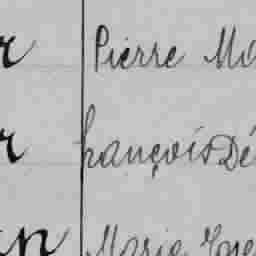 r Pierre Ma
r françois Dé
an Marie Jose